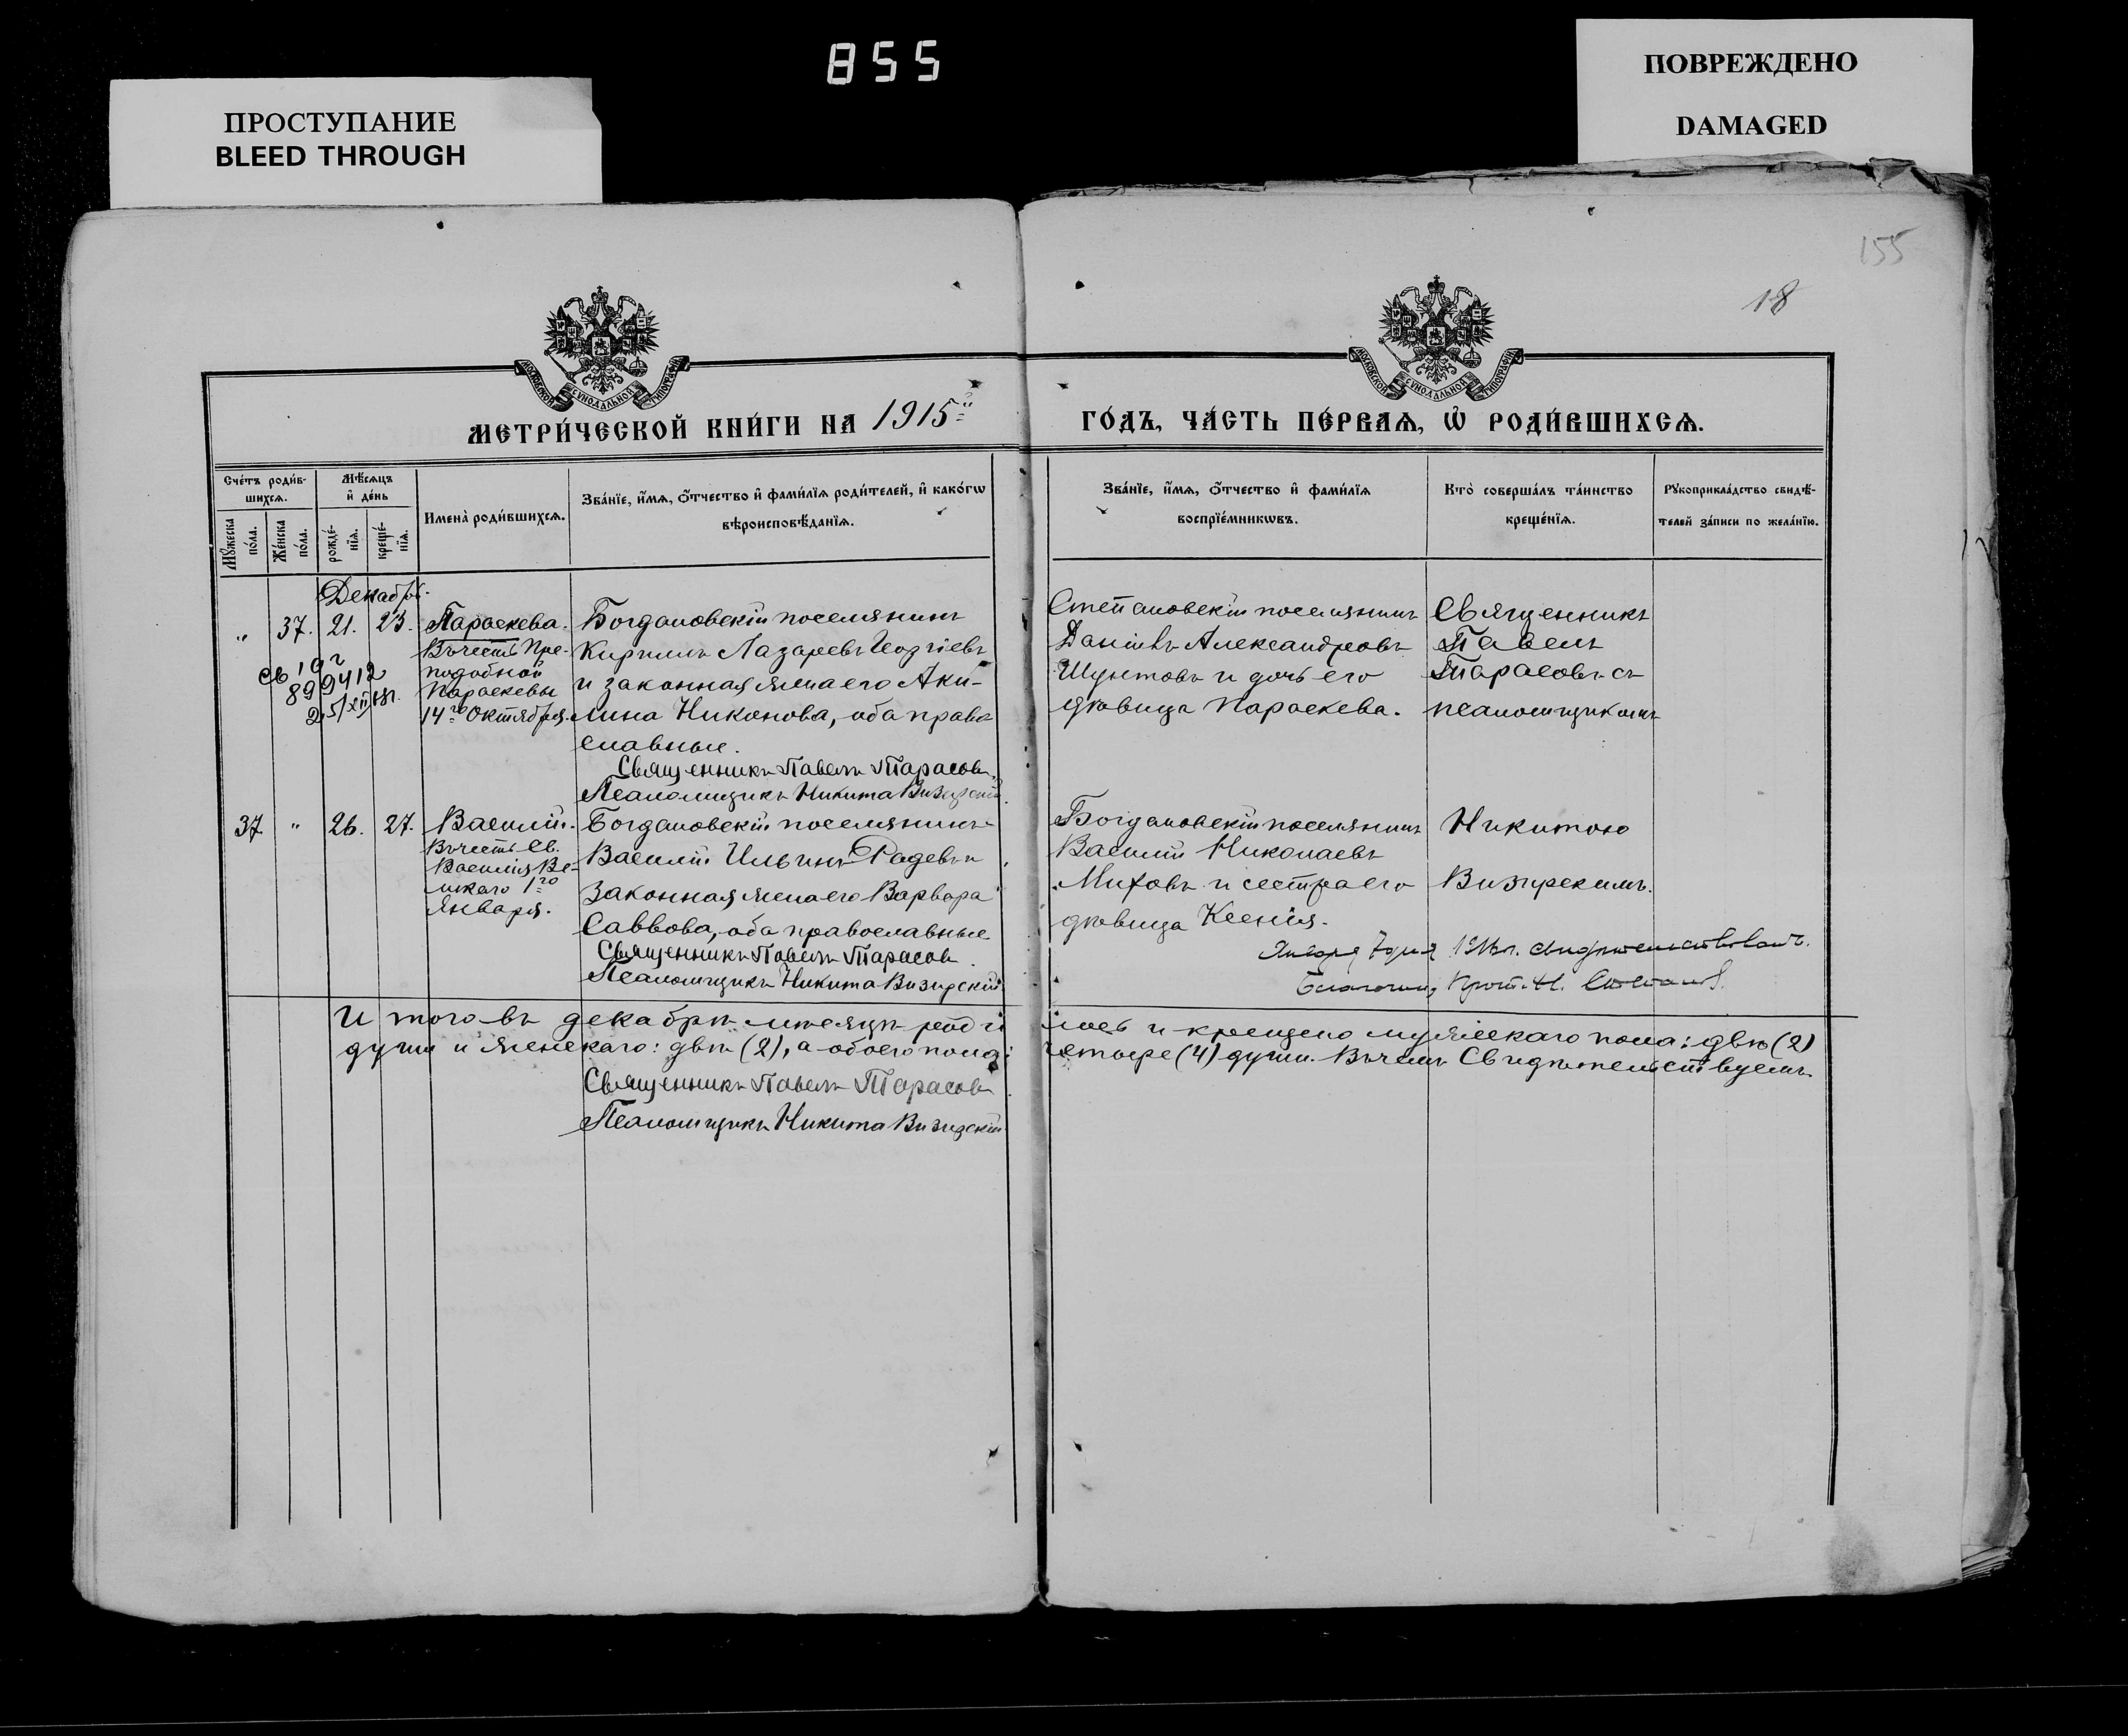 855
ПРОСТУПАНИЕ
BLEED THROUGH
ПОВРЕЖДЕНО
DAMAGED
155
18
МОСКОВСКОЙ СѴНОДАЛЬНОЙ ТИПОГРАФІИ
МОСКОВСКОЙ СѴНОДАЛЬНОЙ ТИПОГРАФІИ
МЕТРИ́ЧЕСКОЙ КНИ́ГИ НА 1915й
ГО́ДЪ, ЧА́СТЬ ПЕ́РВАѦ, Ѡ҆ РОДИ́ВШИХСѦ.
Сче́тъ роди́в-
шихсѧ.
Мꙋ́жеска по́ла.
Же́нска по́ла.
Мѣ́сѧцъ
и҆ де́нь
рожде́-
нїѧ.
креще́-
нїѧ.
Имена̀ роди́вшихсѧ.
Зва́нїе, и҆́мѧ, ѻ҆́тчество и҆ фами́лїѧ роди́телей, и҆ како́гѡ
вѣроисповѣ́данїѧ.
Зва́нїе, и҆́мѧ, ѻ҆́тчество и҆ фами́лїѧ
воспрїе́мникѡвъ.
Кто̀ соверша́лъ та́инство
креще́нїѧ.
Рꙋкоприкла́дство свидѣ́-
телей за́писи по жела́нїю.
Декабрь.
" 37. 21. 23. Параскева.
Въ честь Пре-
подобной
Параскевы
14го Октября.
899412
Богдановскій поселянинъ
Кириллъ Лазаревъ Георгіевъ
и законная жена его Аки-
лина Никонова, оба право
славные.
Священникъ Павелъ Тарасовъ
Псаломщикъ Никита Визирскій.
Степановскій поселянинъ
Даніилъ Александровъ
Шунтовъ и дочь его
дѣвица Параскева.
Священникъ
Павелъ
Тарасовъ съ
псаломщикомъ
37. " 26. 27. Василій.
Въ честь Св.
Василія Ве-
ликаго 1го
Января.
Богдановскій поселянинъ
Василій Ильинъ Радевъ и
законная жена его Варвара
Саввова, оба православные
Священникъ Павелъ Тарасовъ
Псаломщикъ Никита Визирскій
Богдановскій поселянинъ
Василій Николаевъ
Митовъ и сестра его
дѣвица Ксенія.
Никитою
Визирскимъ.
Января 7 дня свидѣтельствовалъ.
Благочин. Прот. Н.
Итого въ декабрѣ мѣсяцѣ роди лось и крещено мужескаго пола: двѣ (2)
души и женскаго: двѣ (2), а обоего пола: четыре (4) души. Въ чемъ Свидѣтельствуемъ
Священникъ Павелъ Тарасовъ
Псаломщикъ Никита Визирскій